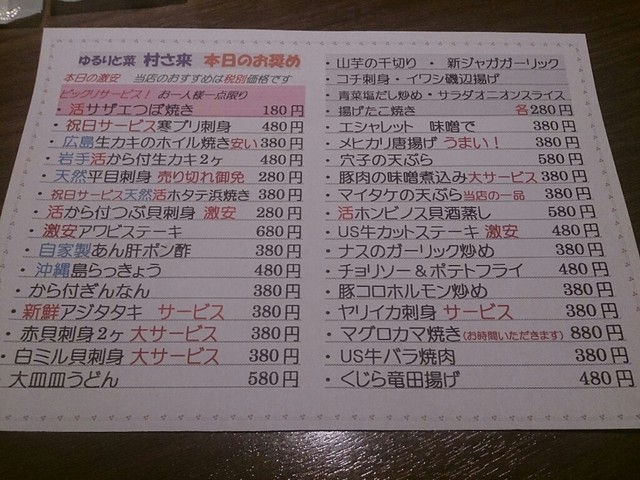 ゆるりと菜 村さ来 本日のお奨め
本日の激安 当店のおすすめは税別価格です
ビックリサービス！ お一人様一点限り
・活サザエつぼ焼き 180円
・祝日サービス寒ブリ刺身 480円
・広島生カキのホイル焼き安い380円
・岩手活から付生カキ2ヶ 480円
・天然平目刺身 売り切れ御免 280円
・祝日サービス天然活ホタテ浜焼き 380円
・活から付つぶ貝刺身 激安 280円
・激安アワビステーキ 680円
・自家製あん肝ポン酢 380円
・沖縄島らっきょう 480円
・から付ぎんなん 380円
・新鮮アジタタキ サービス 380円
・赤貝刺身2ヶ 大サービス 380円
・白ミル貝刺身 大サービス 380円
・大皿皿うどん 580円
・山芋の千切り ・ 新ジャガガーリック
・コチ刺身・イワシ磯辺揚げ
・青菜塩だし炒め・サラダオニオンスライス
・揚げたこ焼き 各280円
・エシャレット 味噌で 380円
・メヒカリ唐揚げ うまい！ 380円
・穴子の天ぷら 580円
・豚肉の味噌煮込み大サービス 380円
・マイタケの天ぷら当店の一品 380円
・活ホンビノス貝酒蒸し 580円
・US牛カットステーキ 激安 480円
・ナスのガーリック炒め 380円
・チョリソー＆ポテトフライ 480円
・豚コロホルモン炒め 380円
・ヤリイカ刺身 サービス 380円
・マグロカマ焼き(お時間いただきます) 880円
・US牛バラ焼肉 380円
・くじら竜田揚げ 480円